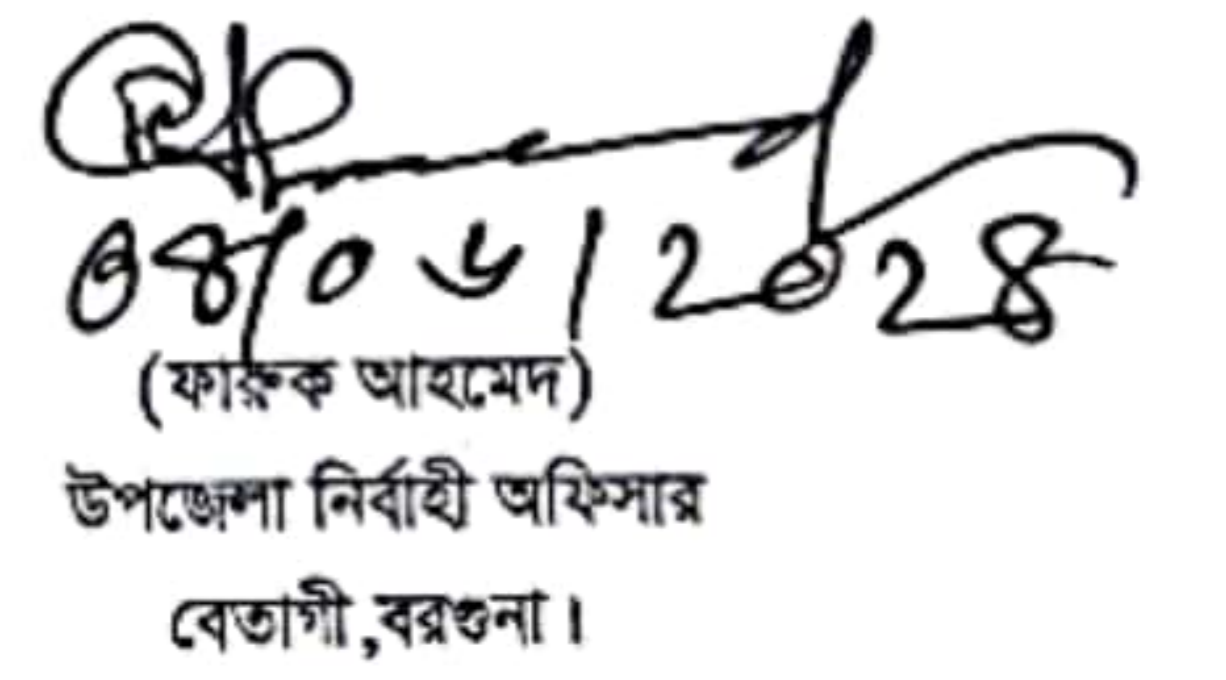 ০৪/০৬/২০২৪
(ফারুক আহমেদ)
উপজেলা নির্বাহী অফিসার
বেতাগী,বরগুনা।